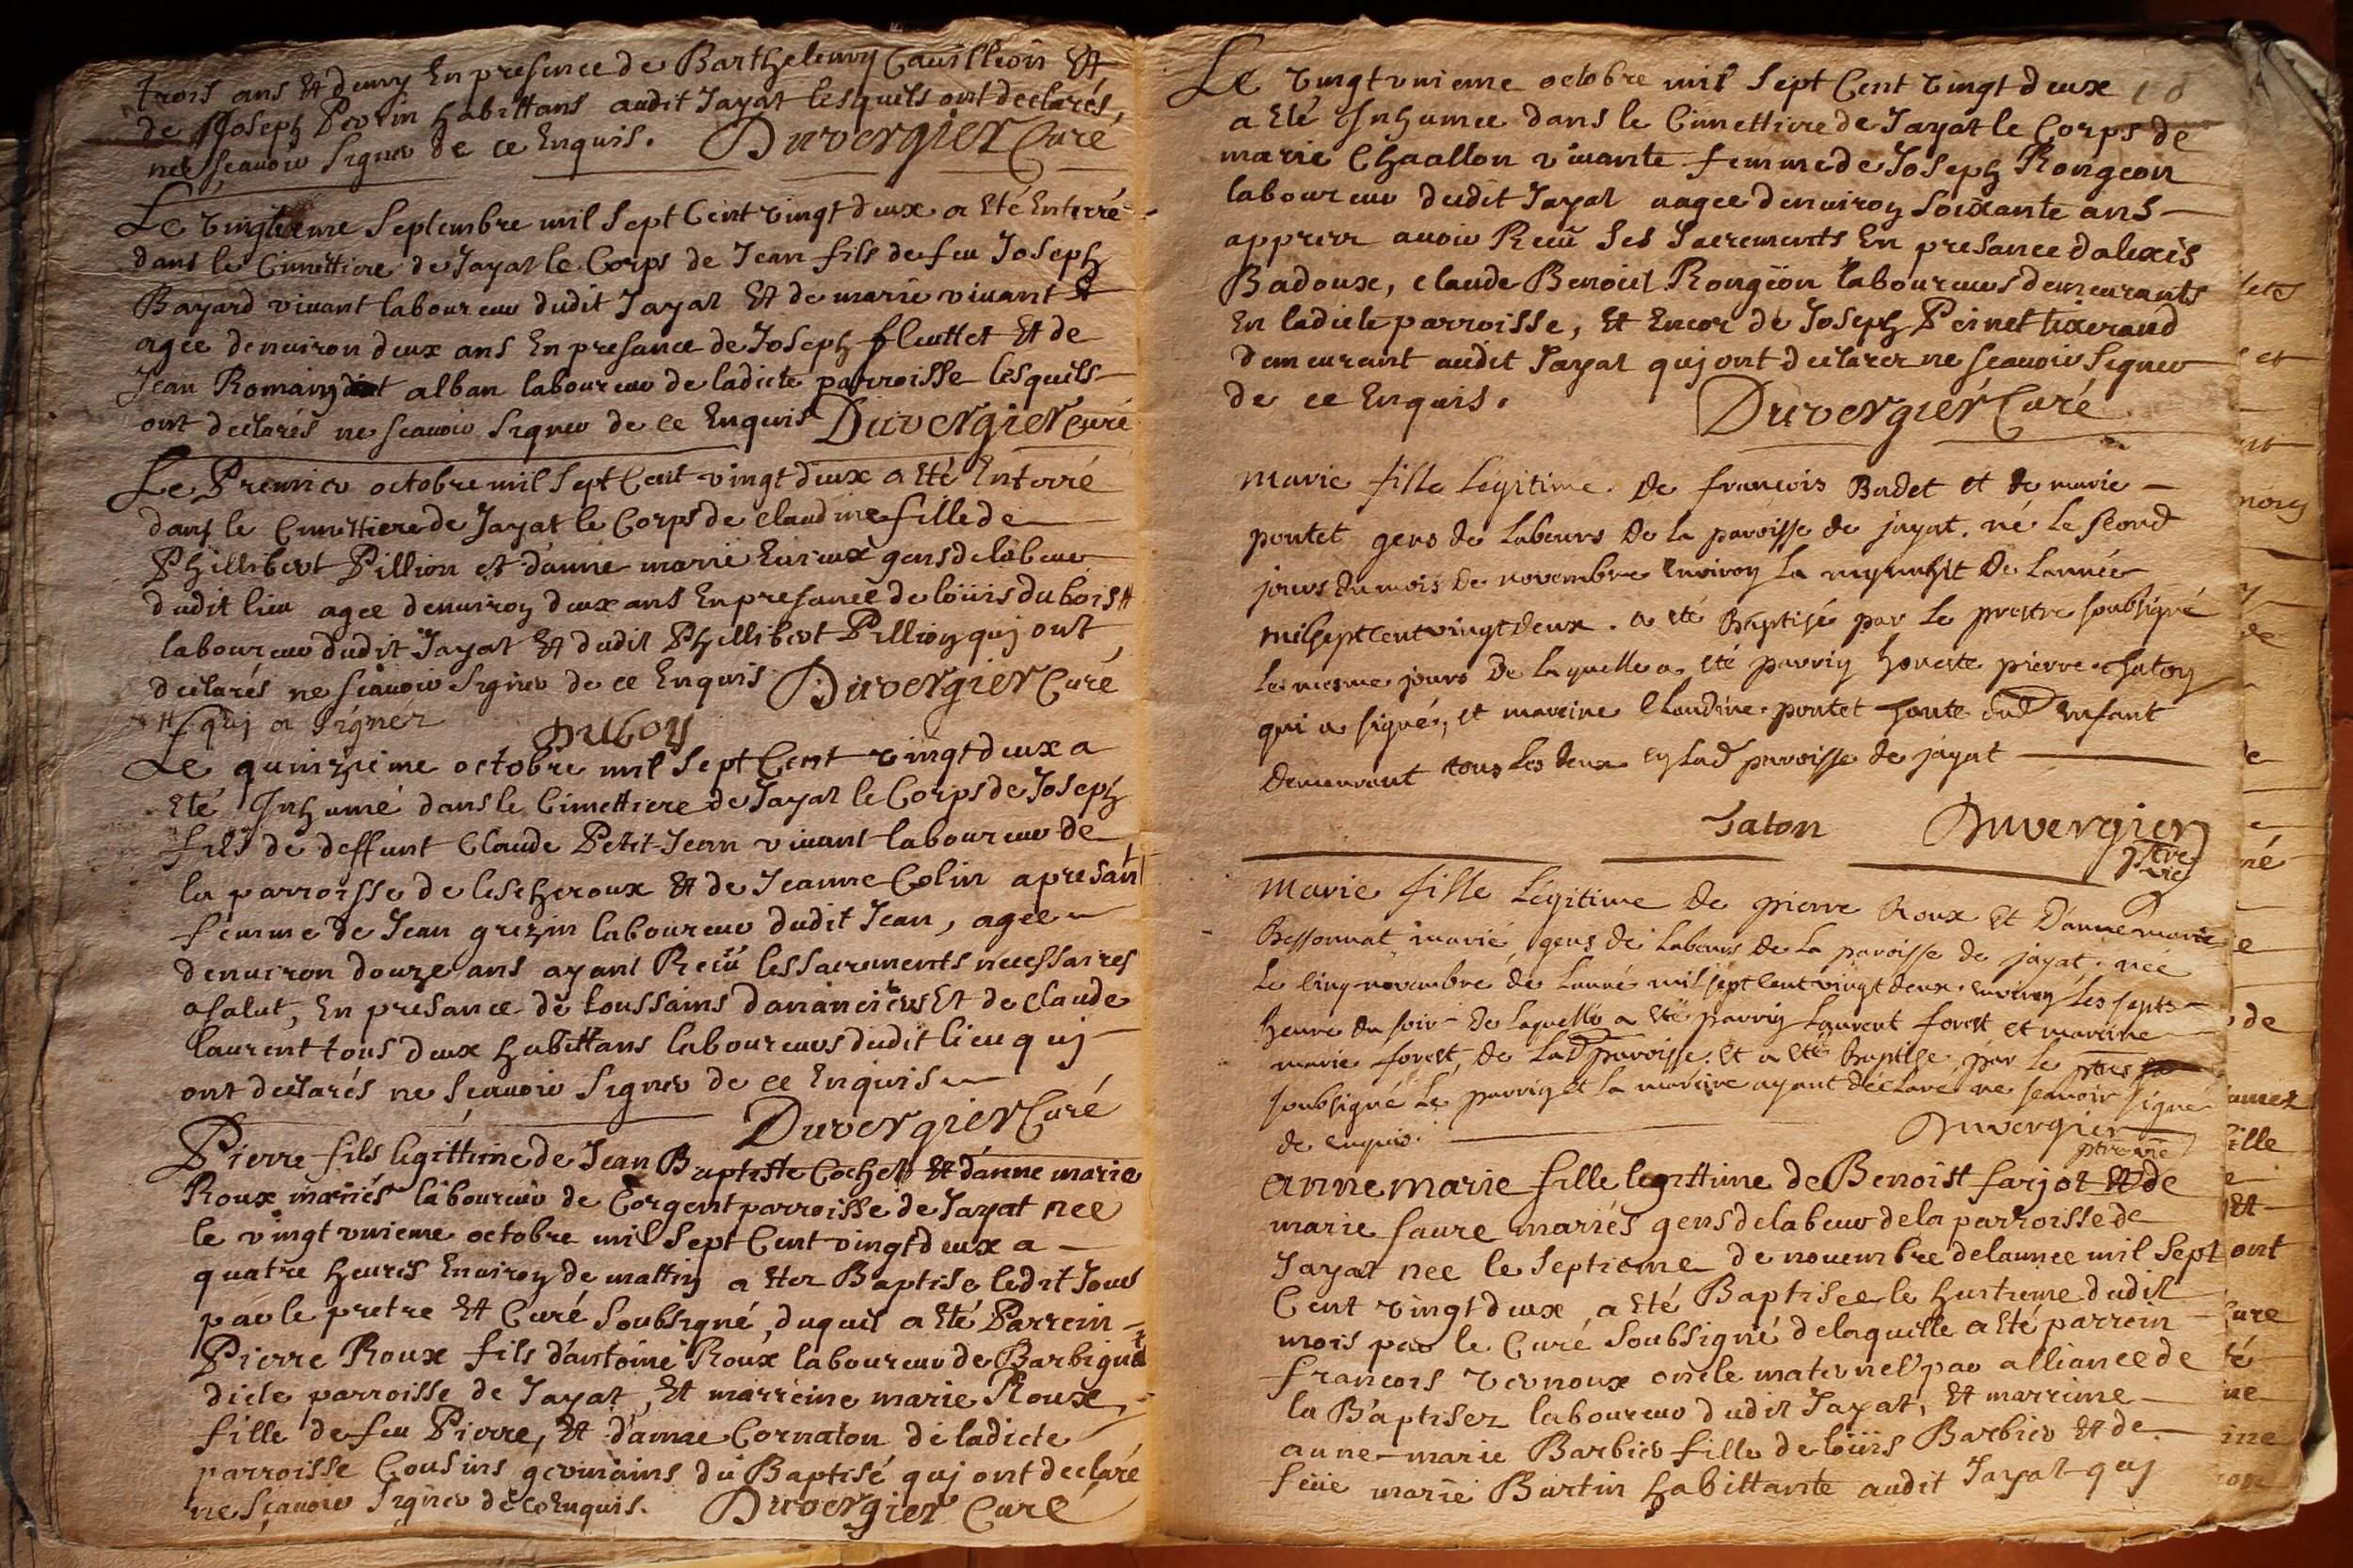 trois ans Et demy En presence de Barthelemy Cavilleon Et
de Joseph Perrin habittans audit Jayat lesquels ont declarés,
ne sçauoir signer de ce Enquis. Duvergier Curé
Le vingtieme Septembre mil sept Cent vingt deux a Eté Enterré
dans le Cimettiere de Jayat le Corps de Jean fils de feu Joseph
Bayard viuant laboureur dudit Jayat Et de marie viuant Et
agée denuiron deux ans En presance de Joseph fleuttet Et de
Jean Romain dit alban laboureur de ladicte parroisse lesquels
ont declarés ne scauoir signer de ce Enquis Duvergier Curé
Le Premier octobre mil Sept Cent vingt deux a Eté Enterré
dans le Cimettiere de Jayat le Corps de Claudine fille de
Phillibert Pillion et d'anne marie gens de labeur
dudit lieu agee denuiron deux ans En presance de loüis du bois #
laboureur dudit Jayat Et dudit Phillibert Pillion quj ont
declarés ne sçauoir signer de ce Enquis Duvergier Curé
# quj a signér Duboy
Le quinzieme octobre mil Sept Cent vingt deux a
Eté Inhumé dans le Cimettiere de Jayat le Corps de Joseph
fils de deffunt Claude Petit-Jean viuant laboureur de
la parroisse de lescheroux Et de Jeanne Colin apresant
femme de Jean grezin laboureur dudit Jean, agee
denuiron douze ans ayant Reçu les sacrements necessaires
a salut, En presance de toussains dananciers Et de Claude
laurent tous deux habittans laboureurs dudit lieu quj
ont declarés ne sçauoir signer de ce Enquis
Duvergier Curé
Pierre fils legittime de Jean Baptiste Cochet Et d'anne marie
Roux mariés laboureur de Corgent parroisse de Jayat nee
le vingt vnieme octobre mil Sept Cent vingt deux a
quatre heures Enuiron de mattin a Eter Baptise ledit Jour
par le pretre Et Curé Soubsigné, duquel a Eté Parrein
Pierre Roux fils d'antoine Roux laboureur de Barbigna
dicte parroisse de Jayat, Et marreine marie Roux,
fille de feu Pierre, Et d'anne Cornaton de ladicte
parroisse Cousins germains du Baptisé quj ont declaré
ne sçauoir signer de ce Enquis. Duvergier Curé
Le vingt vnieme octobre mil Sept Cent vingt deux
a Eté Inhumee dans le Cimettiere de Jayat le Corps de
marie Chaallon viuante femme de Joseph Rongeon
laboureur dudit Jayat aagee denuiron soixante ans
apprer auoir Receü ses Sacrements En presance dalexis
Badoux, claude Benoiet Rongeon laboureurs demeurants
En ladicte parroisse, Et Encor de Joseph Peinet tixerand
demeurant audit Jayat quj ont declarer ne sçauoir signer
de ce Enquis. Duvergier Curé
Marie fille Légitime. de francois Badet et de marie
pontet gens de Labeurs de la paroisse de jayat. né Le second
jours du mois de novembre Enviroy La mynuhit de Lannée
milseptcentvingtdeux. a eté Baptisé par Le prestre soubsigné
Le mesme jours De Laquelle a eté parrin honeste pierre chaton
qui a signé, et mareine Claudine pontet tante dud Enfant
demeurant tous Les deux en Lad paroisse de jayat
Jaton Duvergier
ptre vic
Marie fille Légitime de pierre Roux et D'annemarie
Bessonnat marié, gens de Labeurs de La paroisse de jayat. neé
Le cinq novembre de Lanné mil sept Cent vingt deux. Environ Les septs
heure du soir De Laquelle a eté parrin Laurent forest et mareine
marie forest, de Lad paroisse. et a eté baptise par Le ptre
soubsigné Le parrin et La mareine ayant déclaré ne sçauoir signé
de enquis. Duvergier
ptre vic
Anne marie fille legittime de Benoist farjot Et de
marie faure mariés gens de labeur de la parroisse de
Jayat nee le Septieme de nouembre de lannee mil Sept
Cent vingt deux a Eté Baptisee le huitieme dudit
mois par le Curé Soubsigné de laquelle a Eté parrein
francois vernoux oncle maternel par alliance de
la Baptisez laboureur dudit Jayat, Et marreine
anne-marie Barbier fille de loüis Barbier Et de
feüe marie Burtin habittante audit Jayat quj